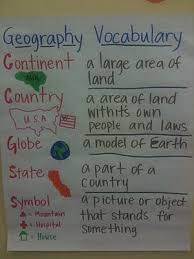 Geography Vocabulary
Continent a large area of
land
Country a area of land
U.S.A withits own
people and laws
Globe a model of Earth
State a part of a
country
Symbol a picture or object
= Mountain that stands for
= Hospital something
= House